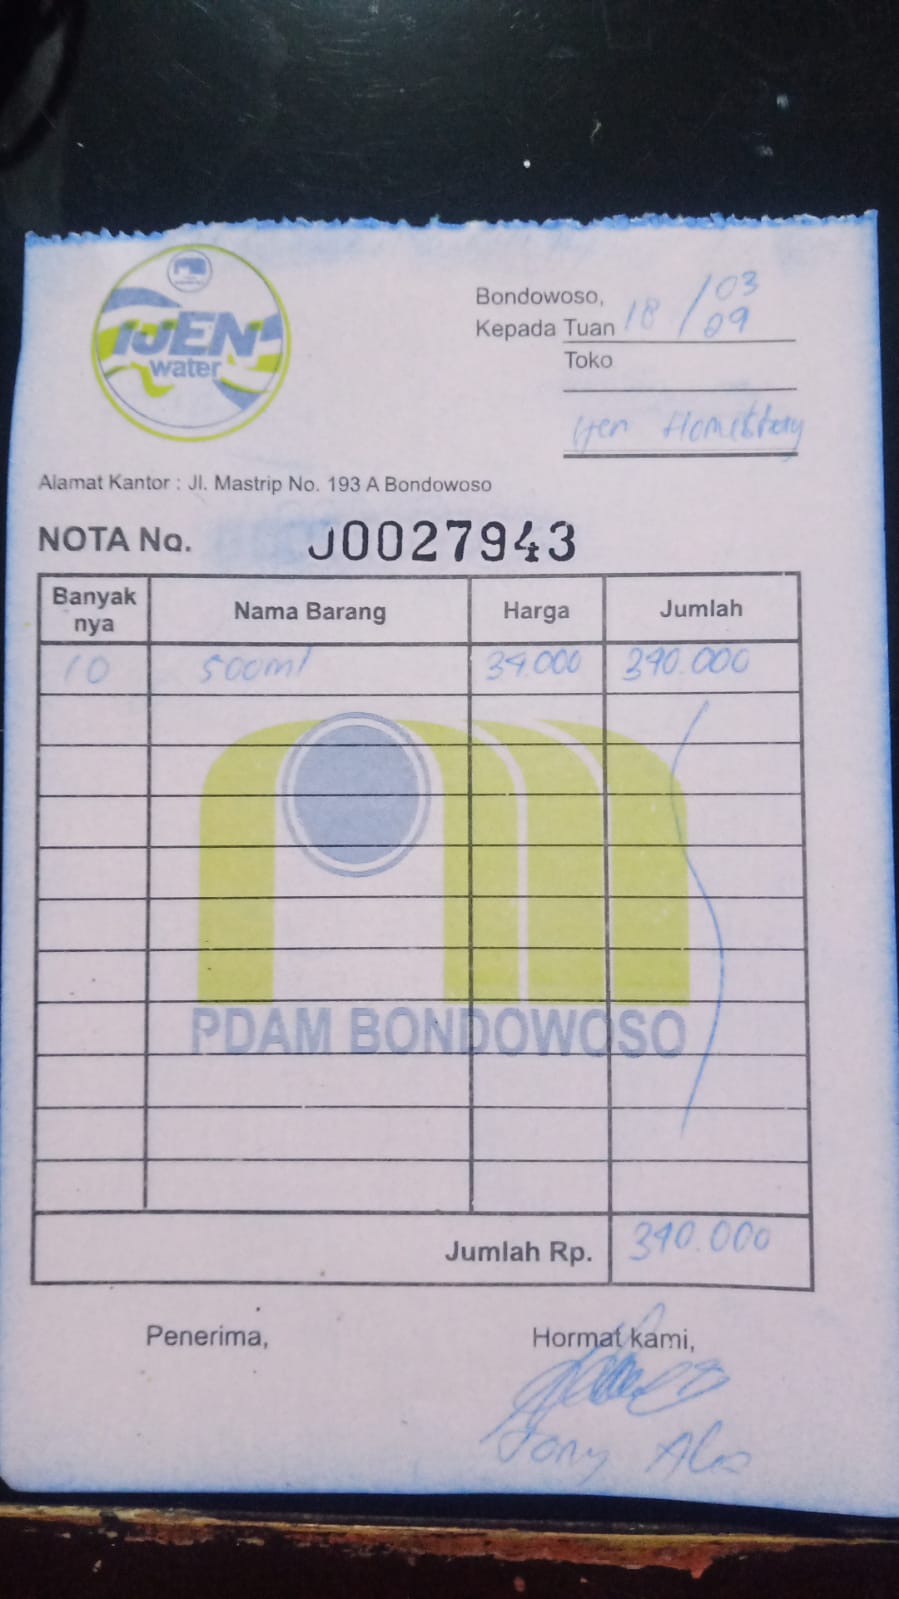 IJEN
water
Bondowoso, 18/03
Kepada Tuan
Toko
Ijen Homestay
Alamat Kantor : Jl. Mastrip No. 193 A Bondowoso
NOTA No. J0027943
Banyak nya Nama Barang Harga Jumlah
10 500ml 39.000 390.000
PDAM BONDOWOSO
Jumlah Rp. 390.000
Penerima, Hormat kami,
Tony